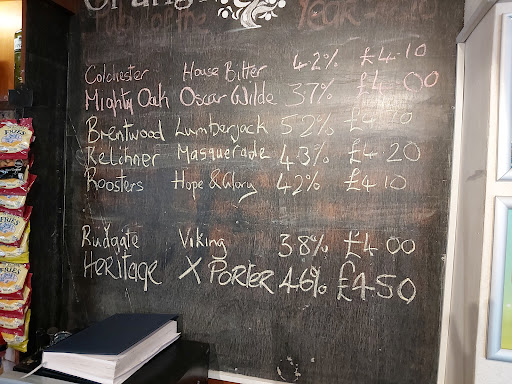 Pub of the Year
Colchester House Bitter 4.2% £4.10
Mighty Oak Oscar Wilde 37% £4.00
Brentwood Lumberjack 52%
Relihner Masquerade 43% £4.20
Roosters Hope & Glory 42% £4.10
Rudgate Viking 38% £4.00
Heritage X Porter 46% £4.50
FRIES